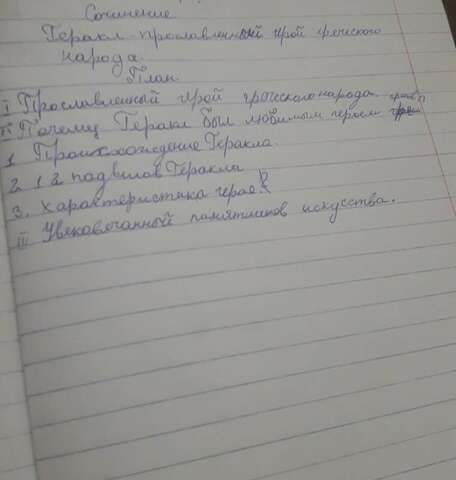 Сочинение
Геракл-прославленный герой греческого
народа.
План.
I Прославленный герой греческого народа.
II Почему Геракл был любимым героем
1. Происхождение Геракла.
2. 12 подвигов Геракла
3. Характеристика героя?
III Увековечанный памятников искусства.